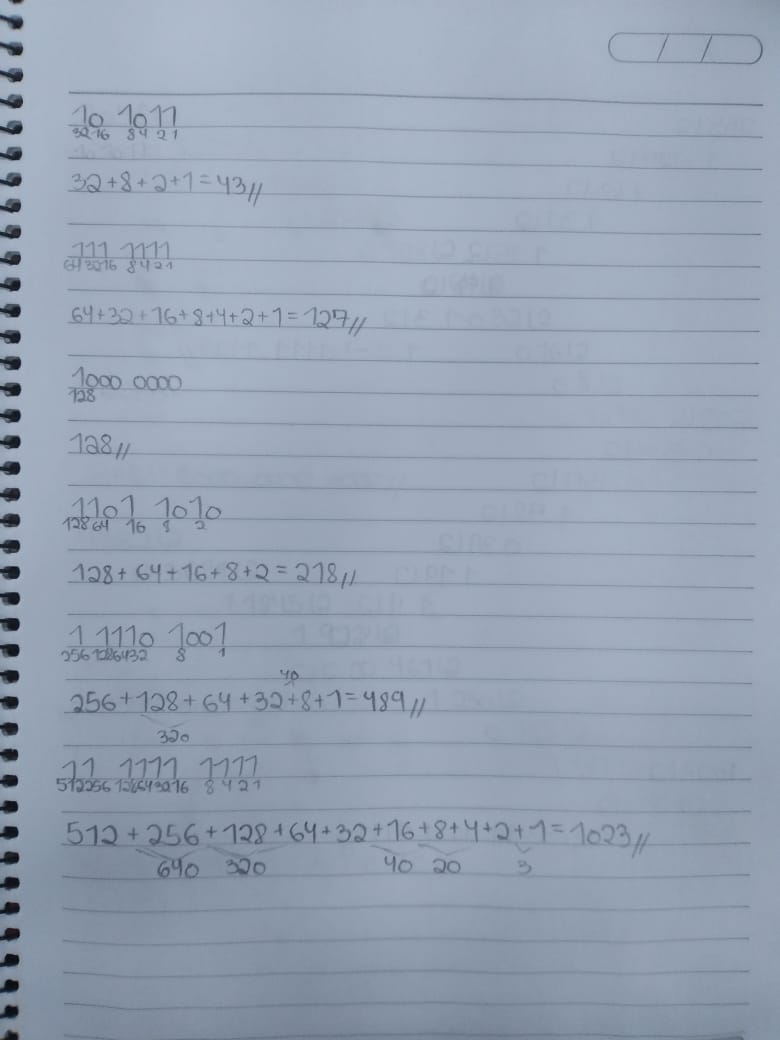 10 1011
32 16 8 4 2 1
32+8+2+1=43//
111 1111
64 32 16 8 4 2 1
64+32+16+8+4+2+1=127//
1000 0000
128
128//
1101 1010
128 64 16 8 2
128+64+16+8+2=218//
1 1110 1001
256 128 64 32 8 1
40
256+128+64+32+8+1=489//
320
11 1111 1111
512 256 128 64 32 16 8 4 2 1
512+256+128+64+32+16+8+4+2+1=1023//
640 320 40 20 3